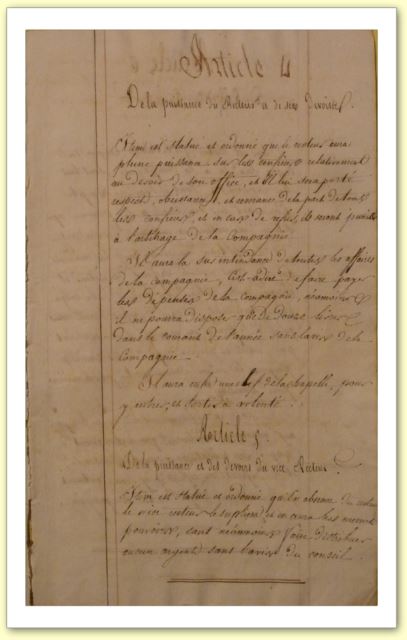 Article 4
De la puissance du Recteur et de ses devoirs.
Item est statué et ordonné que le recteur aura
pleine puissance sur les confrères relativement
au devoir de son office, et Il lui sera porté
respect, obeissance, et de la part de tous
les confrères, et en cas de refus, ils seront punis
à l'arbitrage de la Compagnie.
Il aura la sur intendance de toutes les affaires
de la compagnie, c'est-adire de faire payer
les dépenses de la compagnie, néamoins
il ne pourra disposer que de douze livres
dans le courant de l'année sans l'avis de la
Compagnie.
Il aura une clef de la chapelle, pour
y entrer, et sortir à volonté.
Article 5.
De la puissance et des devoirs du vice Recteur
Item est statué et ordonné qu'en absence du recteur
le vice recteur et en aura les memes
pouvoirs, sans néanmoins faire distribuer
aucun argent sans l'avis du conseil.